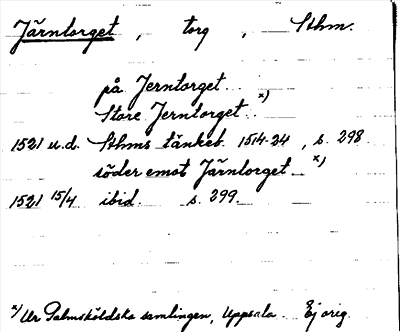 Järntorget , torg , Sthm.
på Jerntorget..
Store Jerntorget.. x)
1521 u.d. Sthms tänkeb. 1514-24, s. 298
söder emot Järntorget.. x)
1521 15/4 ibid. s. 299.
x) Ur Palmsköldska samlingen, Uppsala. Ej orig.